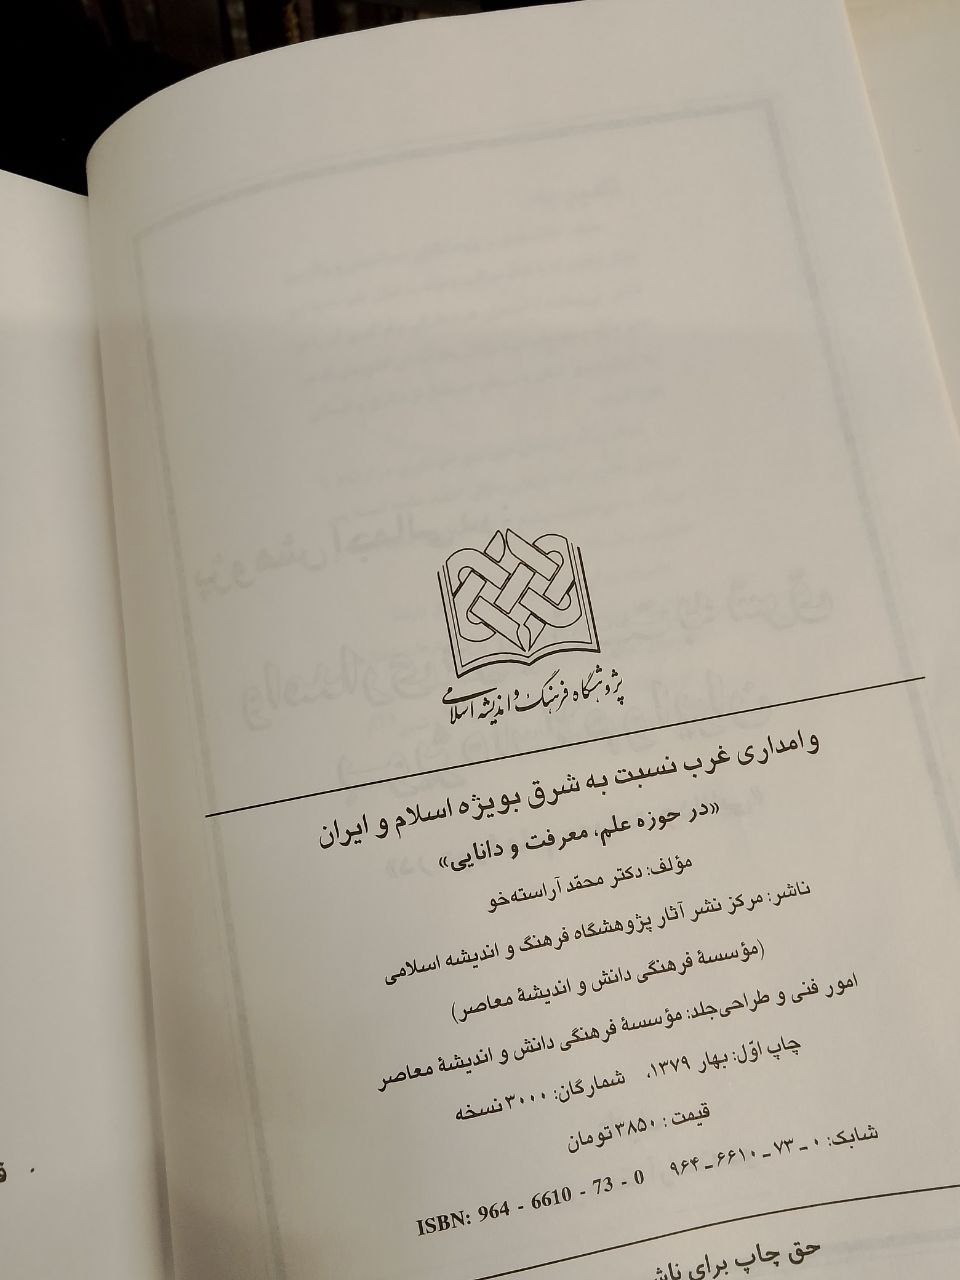 پژوهشگاه فرهنگ و اندیشه اسلامی
وامداری غرب نسبت به شرق بویژه اسلام و ایران
«در حوزه علم، معرفت و دانایی»
مؤلف: دکتر محمّد آراسته‌خو
ناشر: مرکز نشر آثار پژوهشگاه فرهنگ و اندیشه اسلامی
(مؤسسهٔ فرهنگی دانش و اندیشهٔ معاصر)
امور فنی و طراحی‌جلد: مؤسسهٔ فرهنگی دانش و اندیشهٔ معاصر
چاپ اوّل: بهار ۱۳۷۹، شمارگان: ۳۰۰۰ نسخه
قیمت: ۳۸۵۰ تومان
شابک: ۰ ـ ۷۳ ـ ۶۶۱۰ ـ ۹۶۴ ISBN: 964 - 6610 - 73 - 0
حق چاپ برای